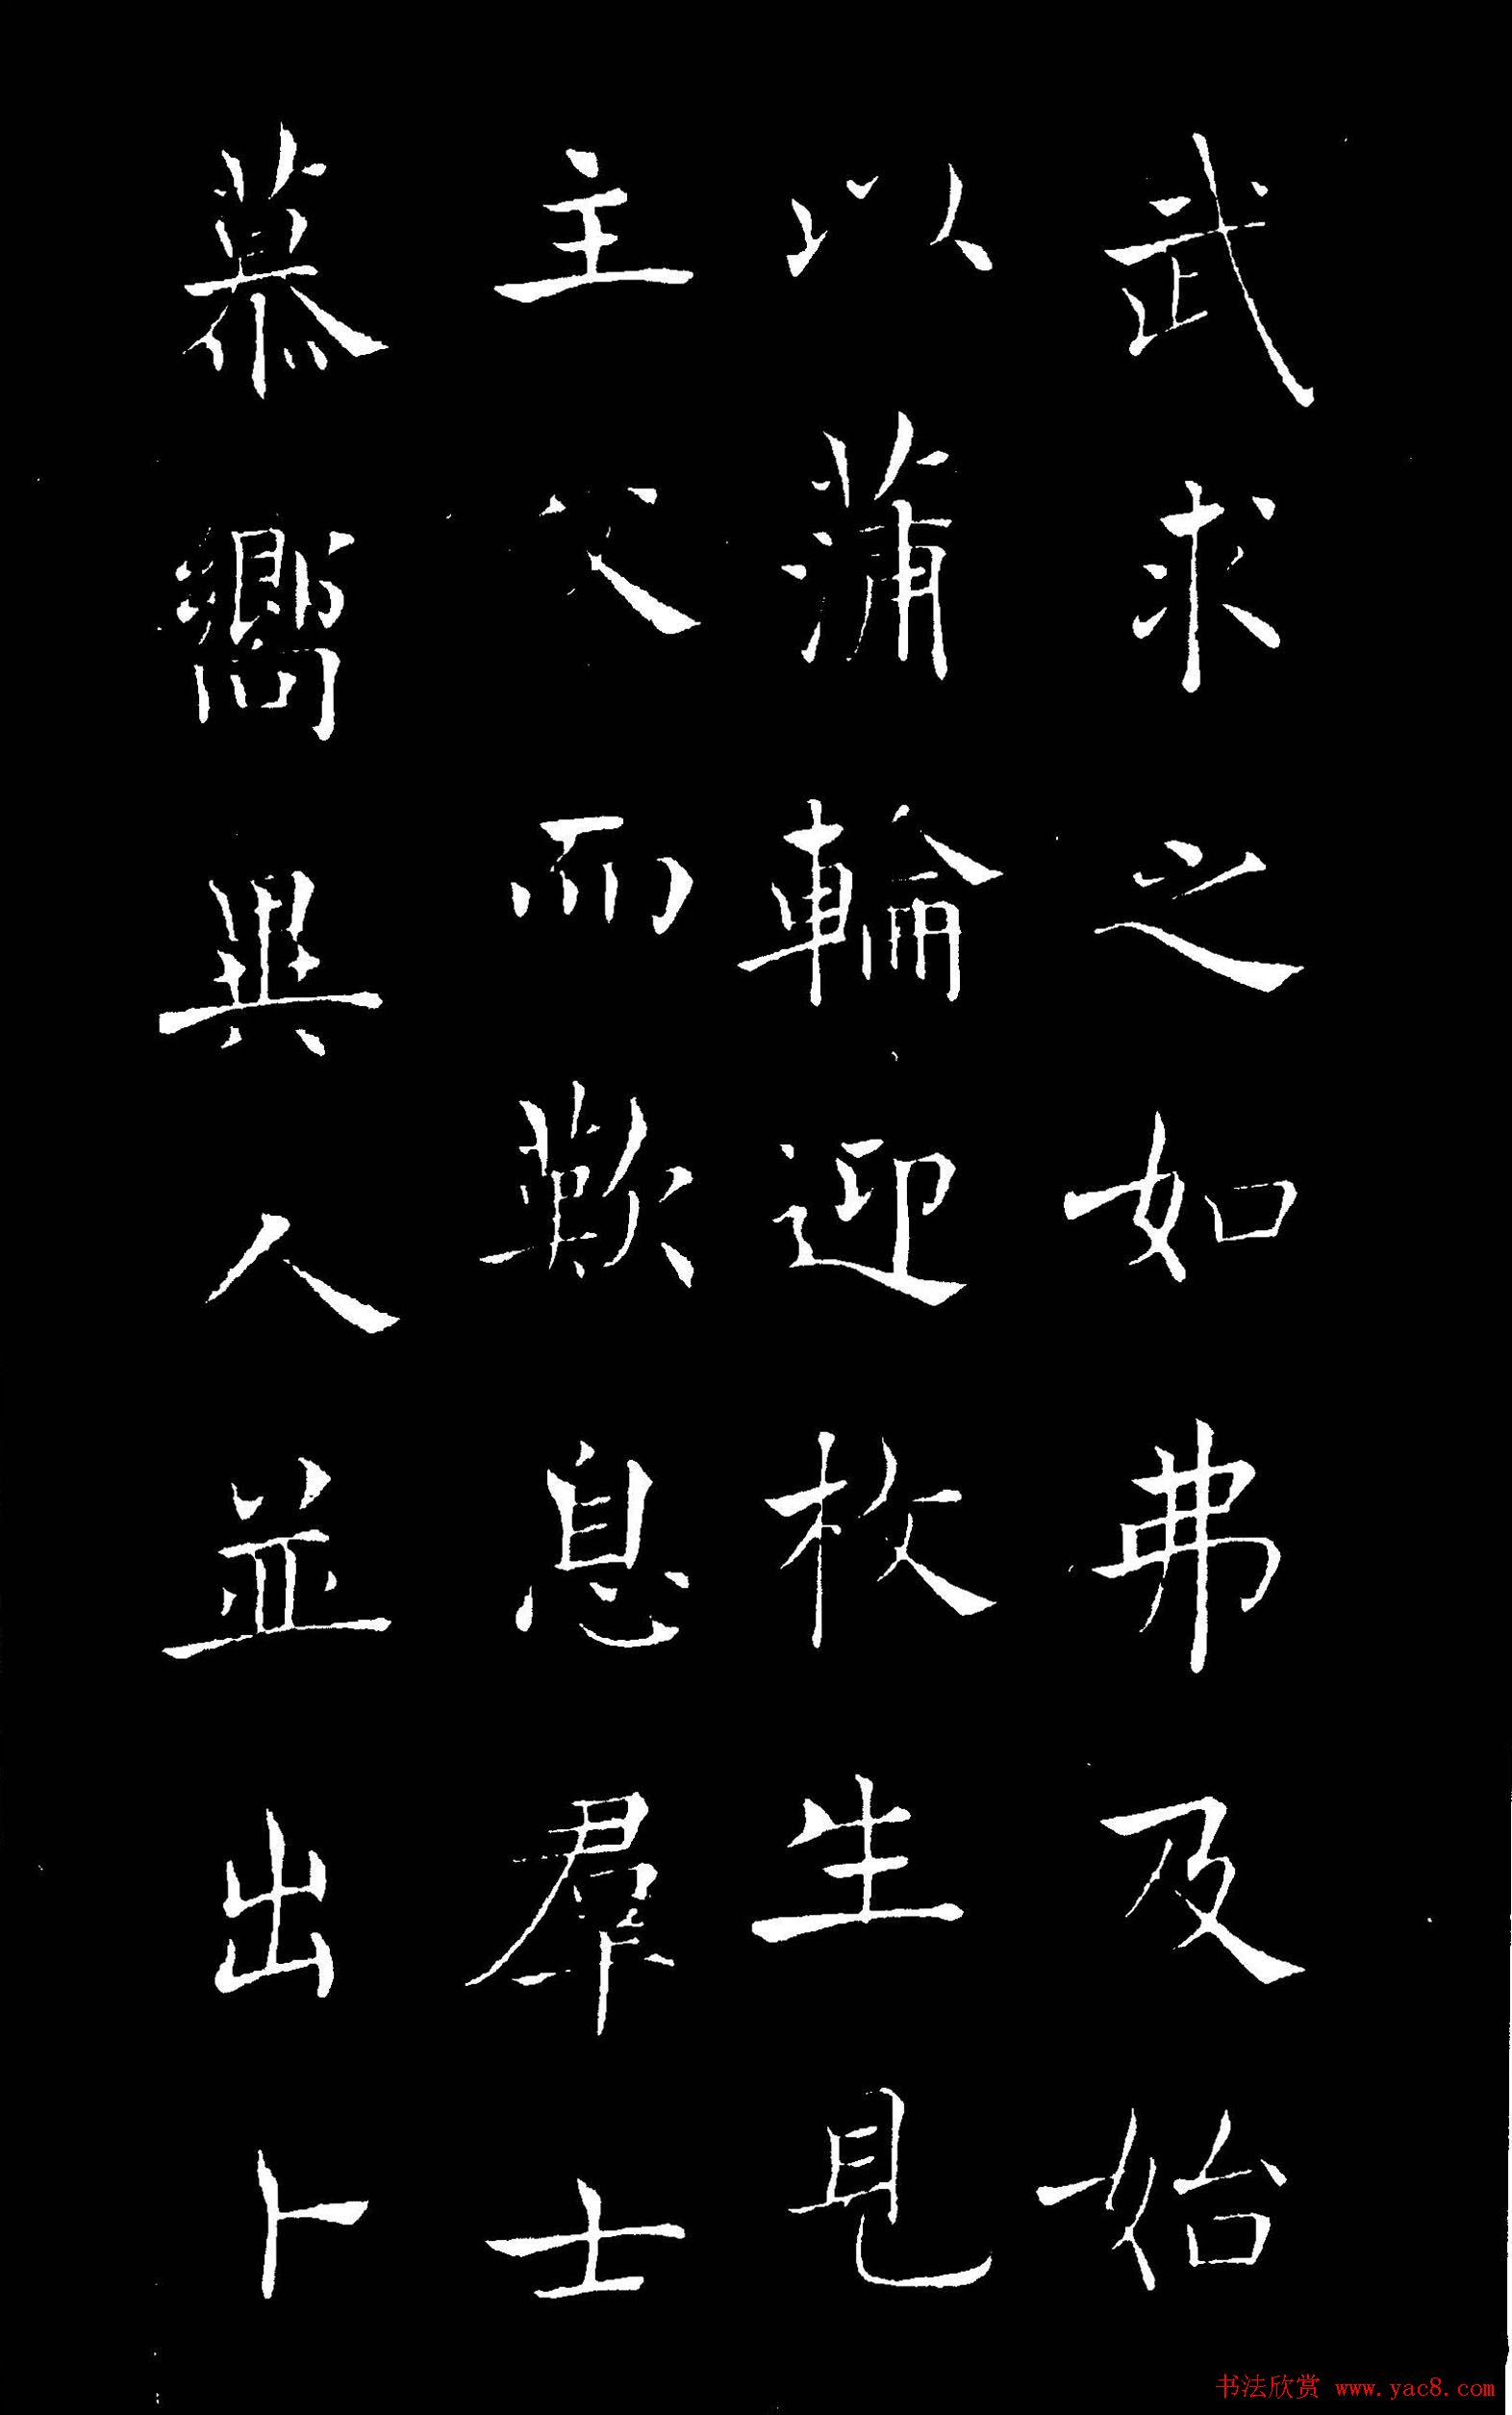 武求之如弗及始
以蒲輪迎枚生見
主父而歎息羣士
慕嚮異人並出卜
书法欣赏 www.yac8.com